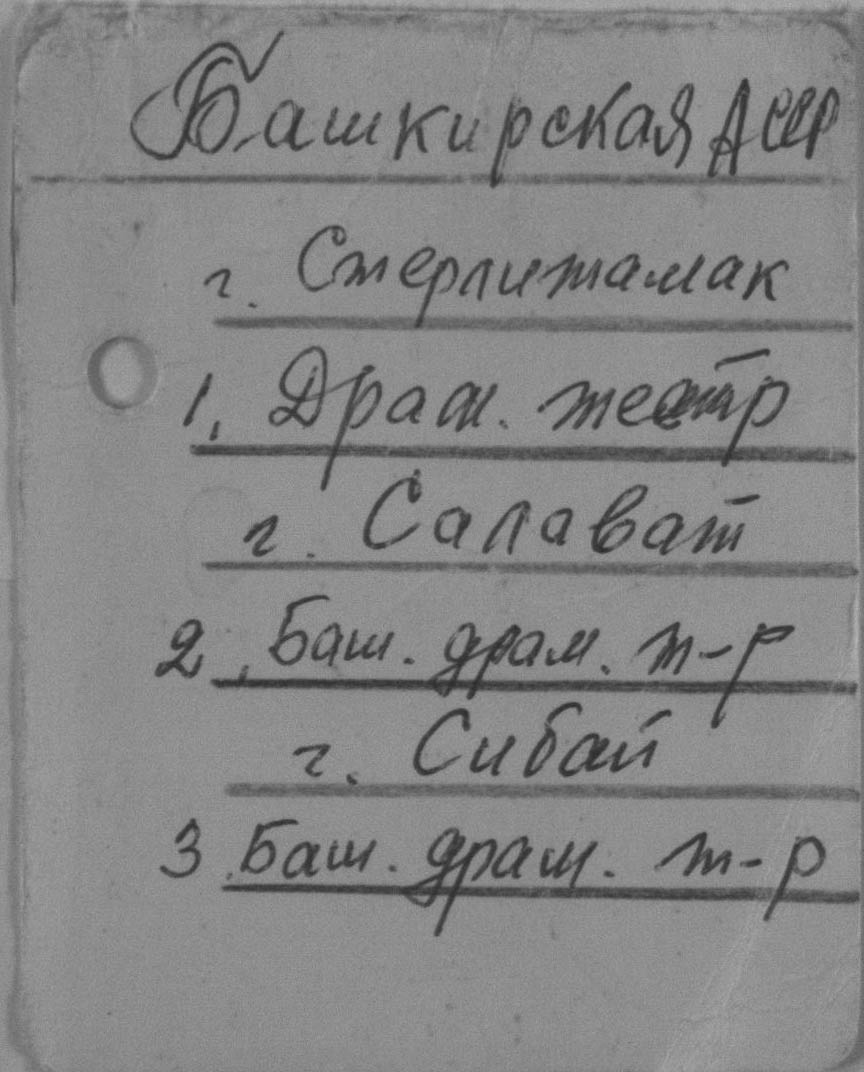 Башкирская АССР
г. Стерлитамак
1, Драм. театр
г. Салават
2, Баш. драм. т-р
г. Сибай
3. Баш. драм. т-р